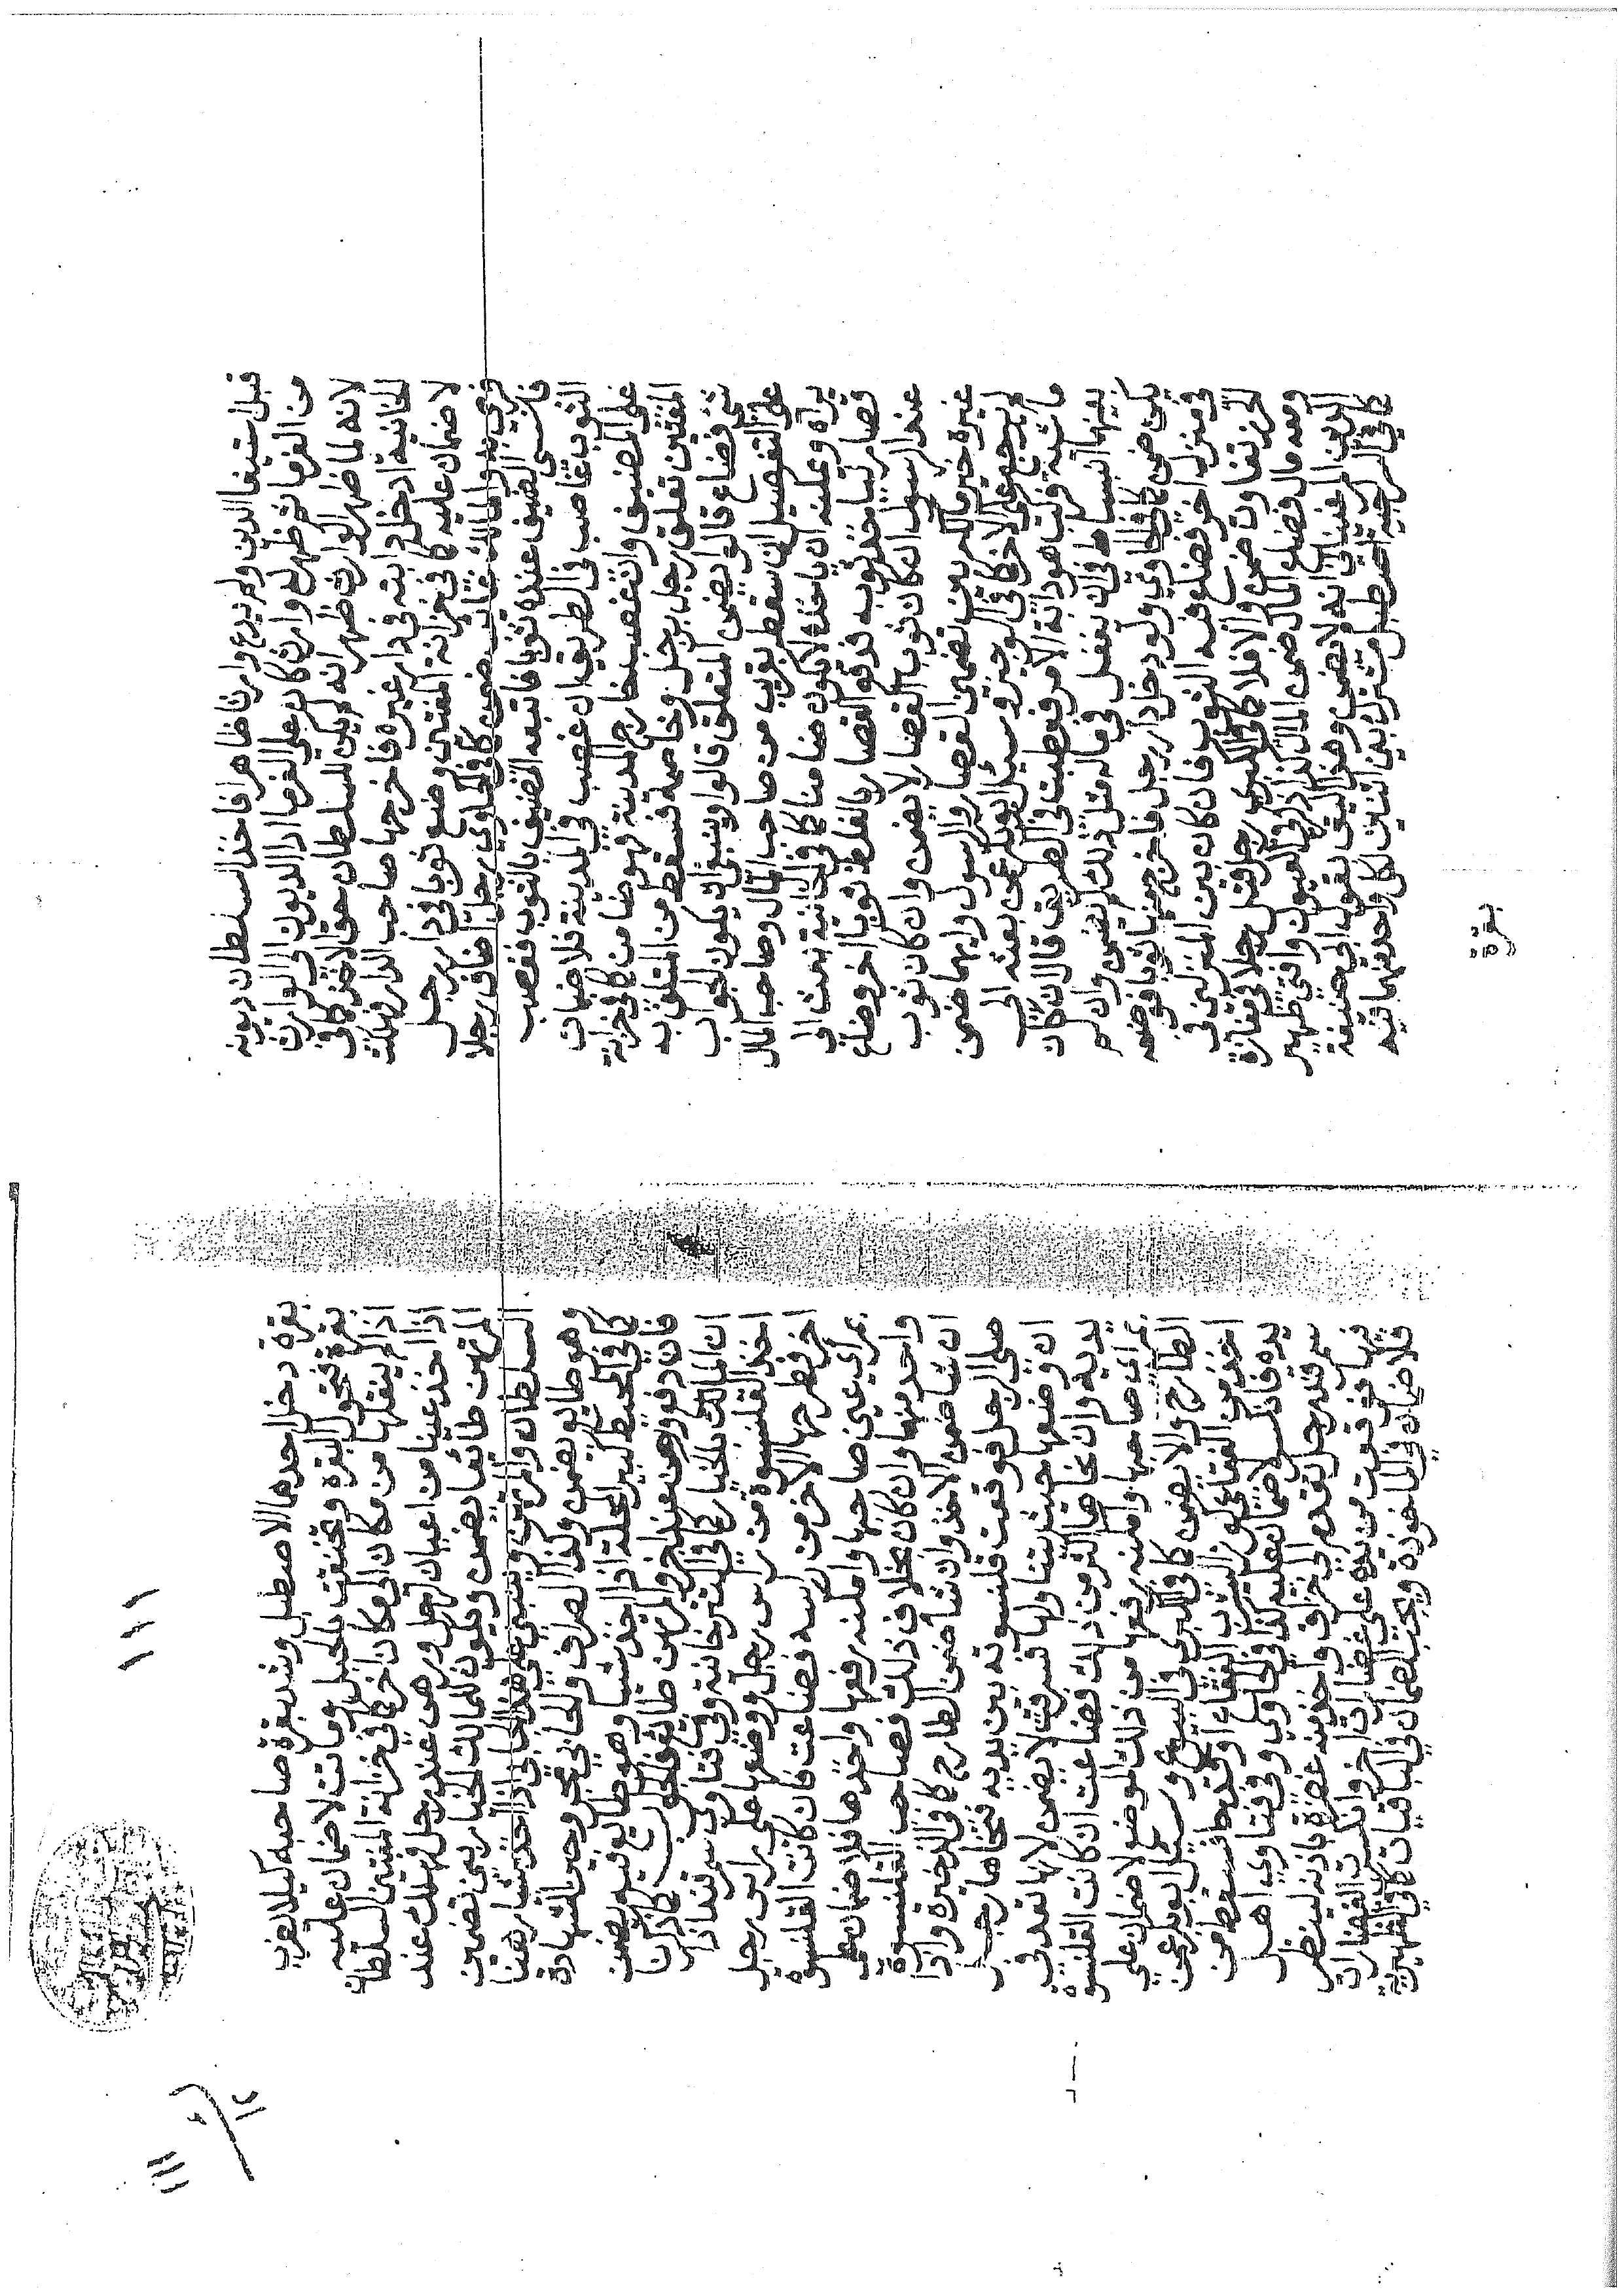 قبل استيفا الدين ولم يدع وارثا ظاهرا فاخذ السلطان ديونه
من الغرما ثم ظهر له وارث كان على الغرما اداء الديون الى الوارث
لانه لما ظهر الوارث ظهر انه لم يكن للسلطان حق الاخذ كما في
الخانية ادخل دابته في دار غيره فاخرجها صاحب الدار فهلكت
لا ضمان عليه كما في خزانة المفتين وضع ثوبا في دار رجل
فرمى به والمالك غائب ضمن كما في الحاوي رجل اضاف رجلا
فانسى الضيف عنده ثوبا فاتبعه المضيف بالثوب فغصب
الثوب غاصب في الطريق ان غصب في المدينة فلا ضمان
على المضيف وان غصب خارج المدينة فهو ضامن كما في خزانة
المفتين تعلق رجل برجل وخاصمه فسقط من المتعلق به
شي فضاع قالوا يضمن المتعلق قالوا وينبغي ان يكون الجواب
على التفصيل ان سقط بقرب من صاحب المال وصاحب المال
يراه ويمكنه ان ياخذه لا يكون ضامنا كما في الخانية بعث الى
قصار لياخذ ثوبه فدفع القصار بالغلط ثوبا اخر وضاع
عند الرسول ان كان ثوب القصار لا يضمن وان كان ثوب
غيره خير مالكه بين تضمين القصار والرسول وايهما ضمن
لم يرجع على الاخر كما في الوجيز وسئل ابو بكر عمن بعثه الى
ماشية فركب هو دابة الامر فعطبت في الطريق قال ان كان
بينهما انبساط في ان يفعل في ماله مثل ذلك لم يضمن وان لم
يكن ضمن كما في الحاوي ولو دخل دار رجل فاخرج منها ثوبا فوضعه
في منزل اخر فضاع فيه الثوب فان كان بين المنزلين في
الحرز تفاوت ضمن والا فلا كما في الكبرى رجل قتل رجلا في مفازة
ومعه مال فضاع المال ضمن المال كذا ذكر في العيون وافتى ظهير
الدين المرغيناني انه لا يضمن وهو اليق بقول ابي حنيفة
كما في السراجية اصطبل مشترك بين اثنين لكل واحد منهما فيه
بقرة
١١١
بقرة دخل احدهما الاصطبل وشد بقرة صاحبه كيلا تضرب
بقرة فتحول البقرة وتخنقت بالحبل وماتت لا ضمان عليه
اذا لم ينقلها من مكان الى مكان اخر كما في خزانة المفتين السلطان
اذا اخذ عينا من اعيان رجل ورهن عند رجل فهلك عند
المرتهن طائعا يضمن ويكون للمالك الخيار بين تضمين
السلطان والمرتهن وينبغي على هذا الجابي اذا اخذ شيئا رهنا
وهو طايع يضمن وكذا الصراف والجابي مجروحين الشهادة
كما في المحيط كبير المحلة اذا اخذ شيا وهو طايع فيه يضمن
فان دفع ورهن عند اخر والمرتهن طائع فالجواب كما ذكرنا
ان المالك بالخيار كما في التترخانية وفي فتاوى سمرقند اذا
اخذ القلنسوة من راس رجل ووضعها على راس رجل
اخر فطرحها الاخر من راسه فضاعت فان كانت القلنسوة
بمراي عين صاحبها وامكنه رفعها واخذها فلا ضمان على
واحد منهما وان كان بخلاف ذلك فصاحب القلنسوة
ان شا ضمن الاخذ وان شا ضمن الطارح كما في الذخيرة واذا
صلى الرجل فوقعت قلنسوته بين يديه فنحاها رجل
ان وضعها حيث يتناولها فسرقت لا يضمن لانها تعد في
يديه وان نحاها اكثر من ذلك فضاعت ان كانت القلنسوة
بمراي صاحبها وامكنه رفعها من ذلك الموضع لا ضمان على
الطارح والا يضمن كما في الكبرى في البيوع وسئل ابو بكر عمن
اخذ من الفقاعي كوز الشرب الفقاع او قدحا فسقط من
يده فانكسر لا ضمان عليه كذا في الحاوي وفي فتاوى اهل
سمرقند رجل تقدم الى خزاف واخذ منه غضارة باذنه لينظر
فيها فوقعت من يده على غضارات اخر وانكسرت الغضارات
فلا ضمان في الماخوذة ويجب الضمان في الباقيات كما في الظهيرية
١١١